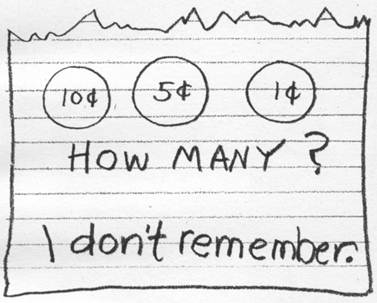 10¢ 5¢ 1¢
HOW MANY ?
I don't remember.